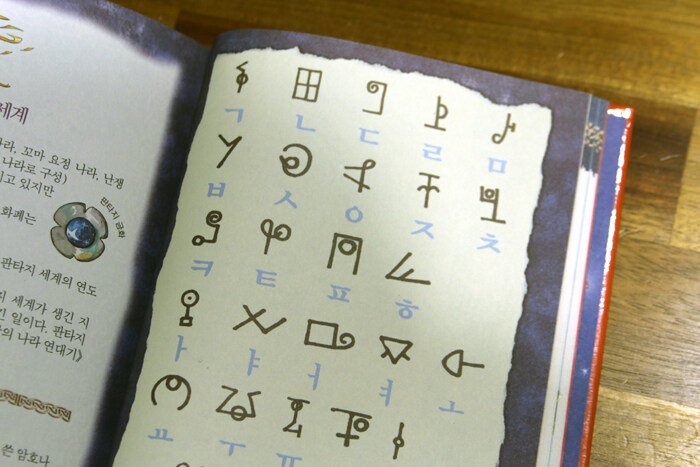 세계
나라, 꼬마 요정 나라, 난쟁
나라로 구성)
있지만
화폐는
판타지 금화
판타지 세계의 연도
세계가 생긴 지
일이다. 판타지
나라 연대기》
쓴 암호나
ㄱ ㄴ ㄷ ㄹ ㅁ
ㅂ ㅅ ㅇ ㅈ ㅊ
ㅋ ㅌ ㅍ ㅎ
ㅏ ㅑ ㅓ ㅕ ㅗ
ㅛ ㅜ ㅠ